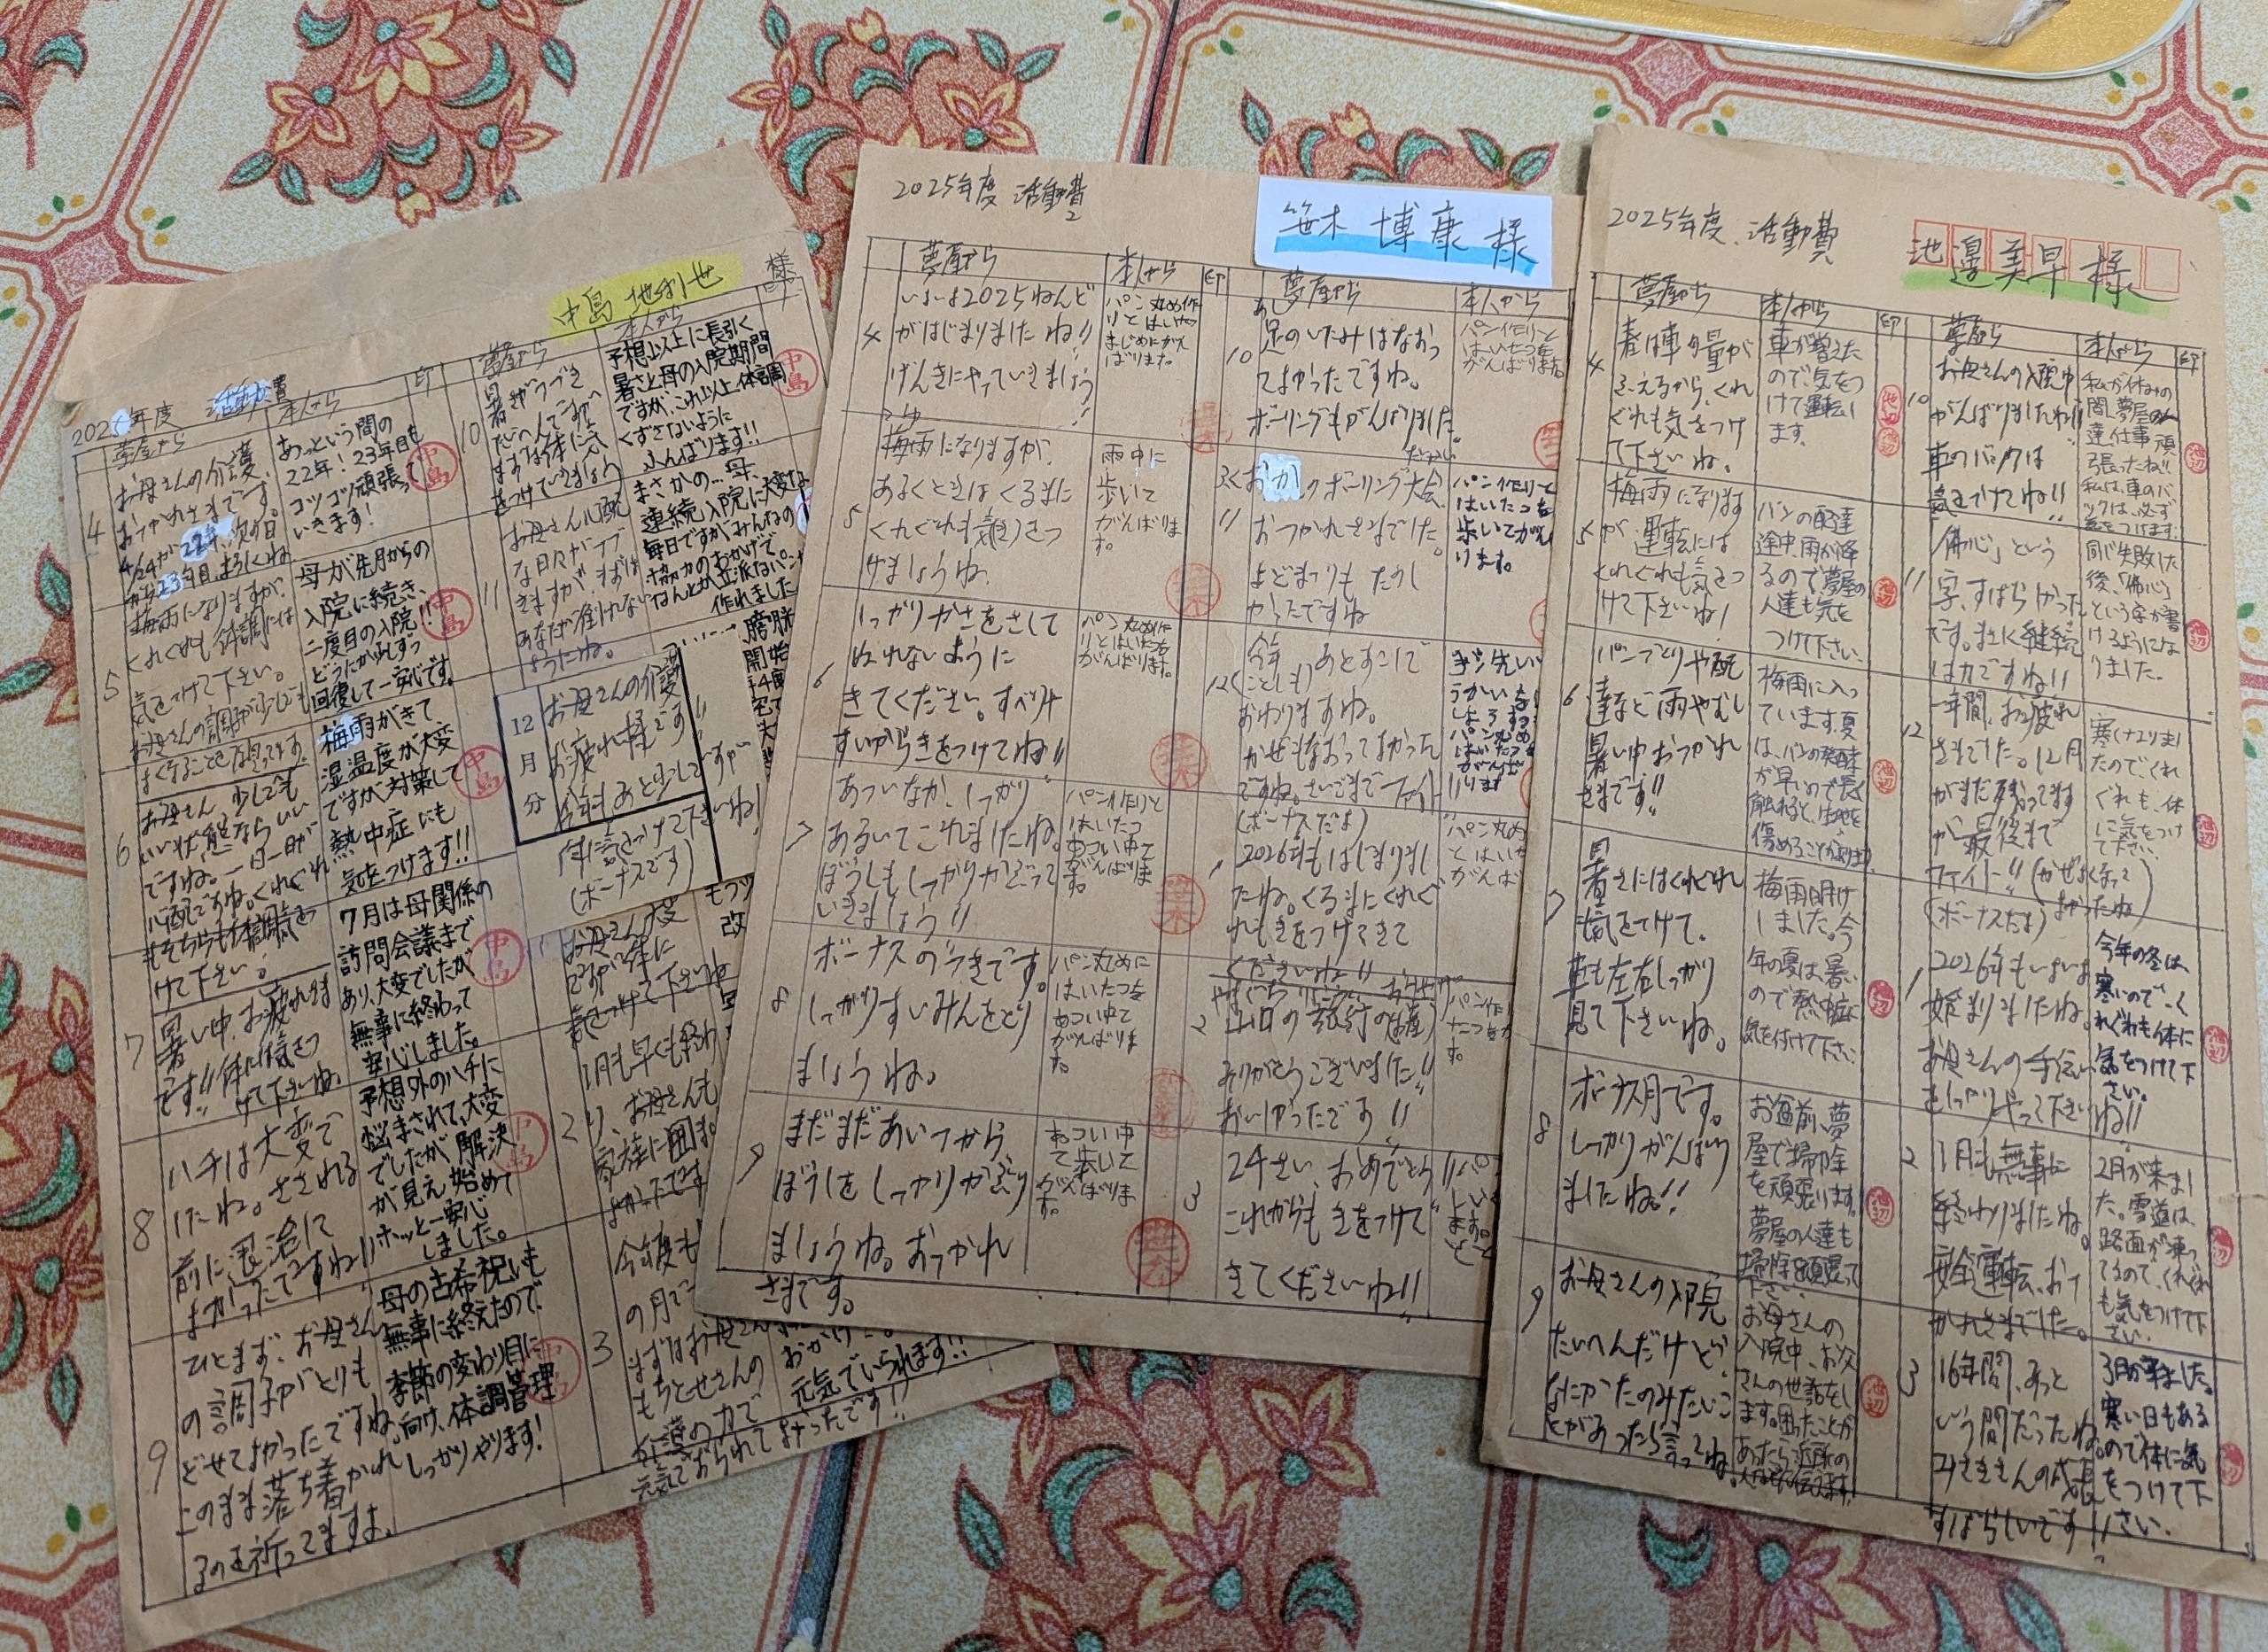 2025年度 活動費
中島 地利世 様
夢屋から
本人から
印
4
お母さんの介護、
おつかれさまです。
4/24が22年、次の日
から23年目、よろしくね
あっという間の
22年!23年目も
コツコツ頑張って
いきます!
中島
5
梅雨になりますが、
くれぐれも体調には
気をつけて下さい。
お母さんの調子が少しでも
よくなることを願ってます。
母が先月からの
入院に続き、
二度目の入院!!
どうにか少しずつ
回復して一安心です。
中島
6
お母さん、少しでも
いい状態ならいい
ですね。一日一日が
心配ですね。くれぐれ
もそちらも体調気を
つけて下さい。
梅雨がきて
湿温度が大変
ですが、対策して
熱中症にも
気をつけます!!
中島
7
暑い中、お疲れさま
です!!体に気をつ
けて下さいね。
7月は母関係の
訪問会議まで
あり、大変でしたが
無事に終わって
安心しました。
中島
8
ハチは大変で
したね。さされる
前に退治して
よかったですね!!
予想外のハチに
悩まされて、大変
でしたが、解決
が見え始めて
ホッと一安心
しました。
中島
9
ひとまず、お母さん
の調子がとりも
どせてよかったですね。
このまま落ち着かれ
るのを祈ってますよ。
母の古希祝いも
無事に終えたので、
季節の変わり目に
向け、体調管理
しっかりやります!
中島
夢屋から
本人から
印
10
暑さがつづき
たいへんですが
まずは体に気
をつけていきましょう
予想以上に長引く
暑さと母の入院期間
ですが、これ以上体調
くずさないように
ふんばります!!
中島
11
お母さん心配
な日々がつづ
きますが、まずは
あなたが倒れない
ようにね。
まさかの…母、
連続入院に大変な
毎日ですがみんなの
協力のおかげで、
なんとか立派なパンが
作れました
12月分
お母さんの介護
お疲れ様です!!
今年もあと少しですが
体に気をつけて下さいね!
(ボーナスです)
お母さん大変
ですが体に
気をつけて下さいね
2
1月も早くも終わ
り、お母さんも
家族に囲ま
よかったです
3
今年度も
の月で
まずはお母さん
もちとせさんの
介護の力で
元気でおられてよかったです!!
おかげ
元気でいられます!!
2025年度 活動費
笹木 博康 様
夢屋から
本人から
印
4
いよいよ2025ねんど
がはじまりましたね!!
げんきにやっていきましょう
パン丸め作
りとはいたつ
まじめにがん
ばります。
5
梅雨になりますが、
あるくときはくるまに
くれぐれも気をつ
けましょうね。
雨中に
歩いて
がんばりま
す。
6
しっかりかさをさして
ぬれないように
きてください。すべりや
すいからきをつけてね!!
パン丸め作
りとはいたつを
がんばります。
7
あついなか、しっかり
あるいてこれましたね。
ぼうしもしっかりかぶって
いきましょう!!
パン作りと
はいたつ
あつい中で
がんばりま
す。
8
ボーナスのつきです。
しっかりすいみんをとり
ましょうね。
パン丸めに
はいたつを
あつい中で
がんばりま
す。
9
まだまだあついから、
ぼうしをしっかりかぶり
ましょうね。おつかれ
さまです。
あつい中
で歩いて
がんばりま
す。
夢屋から
本人から
10
足のいたみはなおっ
てよかったですね。
ボーリングもがんばりました
パン作りと
はいたつを
がんばります。
11
ふくおかのボーリング大会
おつかれさまでした。
よどまつりもたのし
かったですね
パン作りと
はいたつを
歩いてがん
ります。
12
今年(ことし)もあとすこしで
おわりますね。
かぜもなおってよかった
ですね。さいごまでファイト!!
(ボーナスだよ)
1
2026年もはじまりまし
たね。くるまにくれぐ
れもきをつけてきて
くださいね!!
パン丸め
とはいた
がんば
2
山口の旅行のお土産
ありがとうございました!!
おいしかったです!!
パン作
3
24さい、おめでとう!!
これからもきをつけて
きてくださいね!!
2025年度 活動費
池邉美早様
夢屋から
本人から
印
4
春は車の量が
ふえるから、くれ
ぐれも気をつけ
て下さいね。
車が増えた
ので、気をつ
けて運転し
ます。
池辺
5
梅雨になります
が、運転には
くれぐれも気をつ
けて下さいね!
パンの配達
途中、雨が降
るので、夢屋の
人達も気を
つけて下さい。
池辺
6
パンづくりや配
達など雨やむし
暑い中おつかれ
さまです!!
梅雨に入っ
ています。夏
は、パンの発酵
が早いので、長く
触れると、生地を
傷めることがあります。
池辺
7
暑さにはくれぐれ
も気をつけて。
車も左右しっかり
見て下さいね。
梅雨明け
しました。今
年の夏は、暑い
ので、熱中症に
気を付けて下さい。
池辺
8
ボーナス月です。
しっかりがんばり
ましたね!!
お盆前、夢
屋で掃除
を頑張ります。
夢屋の人達も
掃除頑張って
下さい。
池辺
9
お母さんの入院
たいへんだけど、
なにかたのみたいこ
とがあったら言ってね。
お母さんの
入院中、お父
さんの世話をし
ます。困ったことが
あったら近所の
人などに伝えます!
池辺
夢屋から
本人から
印
10
お母さんの入院中
がんばりましたね!!
車のバックは
気をつけてね!!
私が休みの
間、夢屋の人
達仕事頑
張ったね!!
私は、車のバ
ックは、必ず
気をつけます。
池辺
11
「佛心」という
字、すばらしかった
です。まさに継続
は力ですね!!
同じ失敗した
後、「佛心」
という字が書
けるようにな
りました。
池辺
12
一年間、お疲れ
さまでした。12月
がまだ残ってます
が最後まで
ファイト!!(かぜよくなって
よかったね)
(ボーナスだよ)
寒くなりまし
たので、くれ
ぐれも、体
に気をつけ
て下さい。
池辺
1
2026年もいよいよ
始まりましたね。
お母さんの手伝い
をしっかりやって下さいね!!
今年の冬は、
寒いので、く
れぐれも体に
気をつけて下
さい。
池辺
2
1月も無事に
終わりましたね。
安全運転、おつ
かれさまでした。
2月が来まし
た。雪道は、
路面が凍っ
てるので、くれぐれ
も気をつけて下
さい。
池辺
3
16年間、あっと
いう間だったね。
みさきさんの成長
すばらしいです!!
3月が来ました。
寒い日もある
ので体に気
をつけて下
さい。
池辺